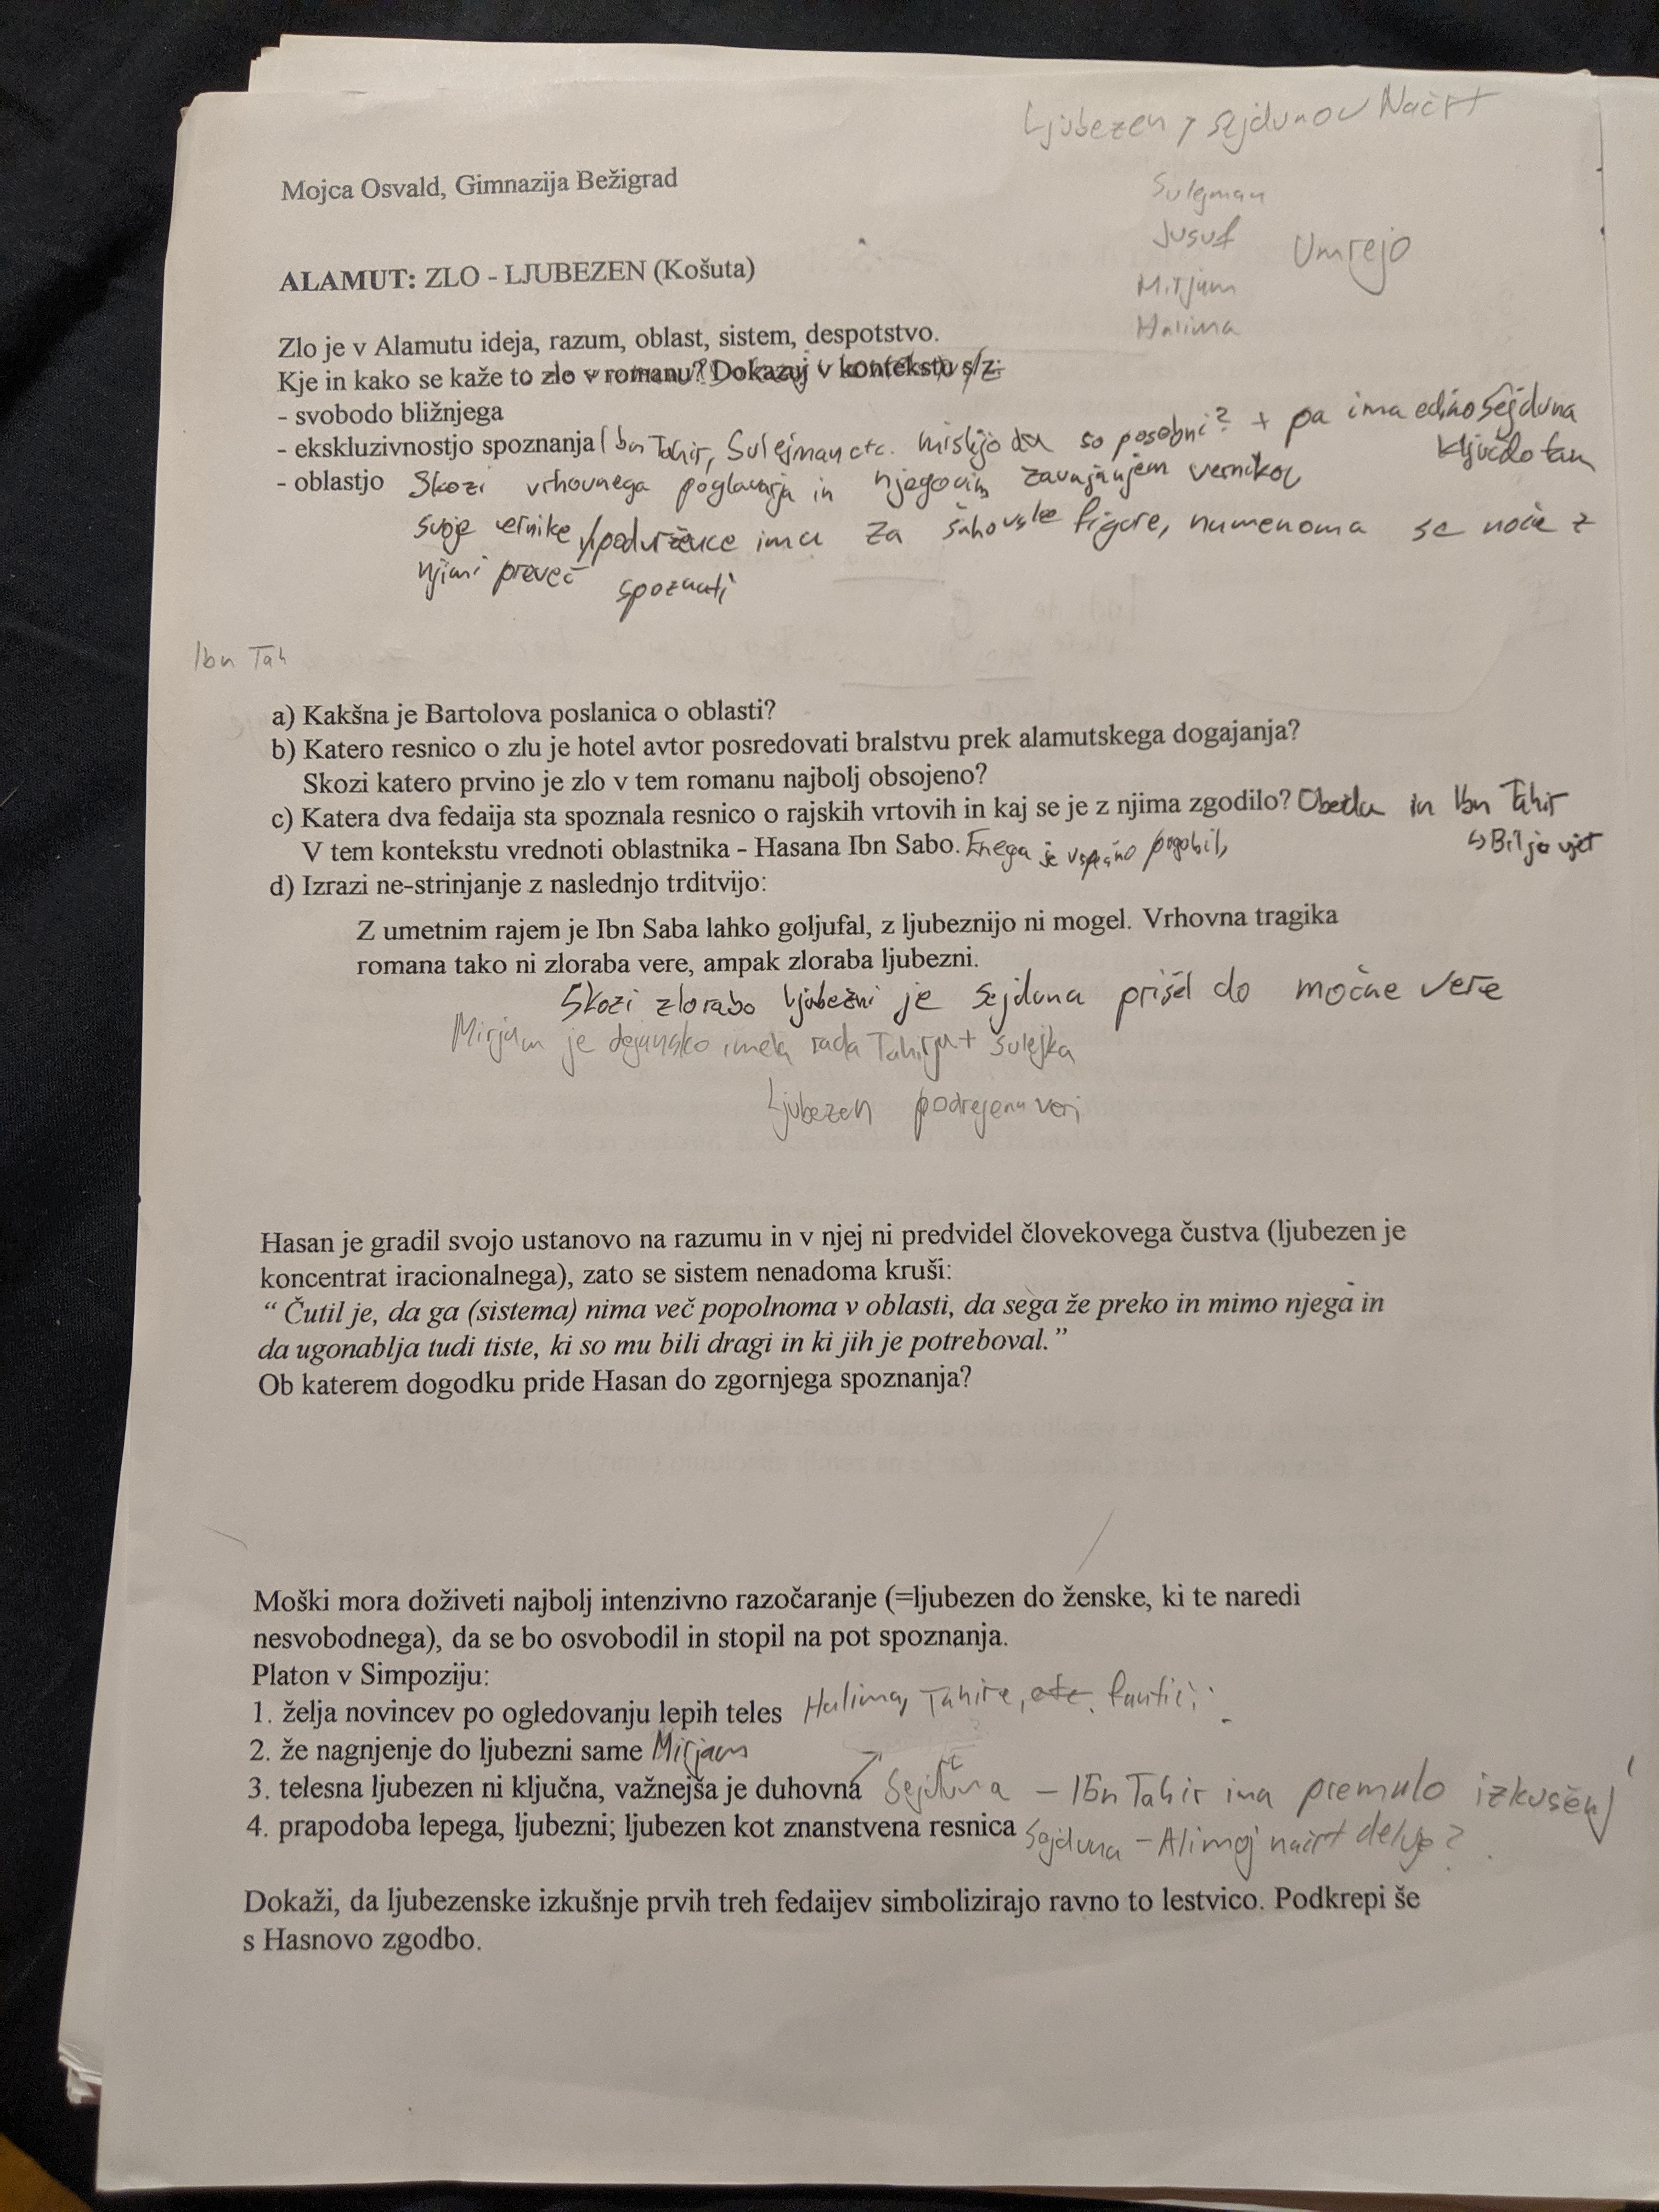 Ljubezen > sejdunov Načrt
Mojca Osvald, Gimnazija Bežigrad
Sulejman
Jusuf
Umrejo
Mirjam
Halima
ALAMUT: ZLO - LJUBEZEN (Košuta)
Zlo je v Alamutu ideja, razum, oblast, sistem, despotstvo.
Kje in kako se kaže to zlo v romanu? Dokazuj v kontekstu s/z:
- svobodo bližnjega
- ekskluzivnostjo spoznanja Ibn Tahir, Sulejman etc. mislijo da so posebni? + pa ima edino Sejduna
ključ do tam
- oblastjo Skozi vrhovnega poglavarja in njegovim zavajanjem vernikov
svoje vernike/podržence ima za šahovske figure, namenoma se noče z
njimi preveč spoznati
Ibn Tah
a) Kakšna je Bartolova poslanica o oblasti?
b) Katero resnico o zlu je hotel avtor posredovati bralstvu prek alamutskega dogajanja?
Skozi katero prvino je zlo v tem romanu najbolj obsojeno?
c) Katera dva fedaija sta spoznala resnico o rajskih vrtovih in kaj se je z njima zgodilo? Obeida in Ibn Tahir
↳ Bil je ujet
V tem kontekstu vrednoti oblastnika - Hasana Ibn Sabo. Enega je uspešno pogobil,
d) Izrazi ne-strinjanje z naslednjo trditvijo:
Z umetnim rajem je Ibn Saba lahko goljufal, z ljubeznijo ni mogel. Vrhovna tragika
romana tako ni zloraba vere, ampak zloraba ljubezni.
Skozi zlorabo ljubezni je Sejduna prišel do močne vere
Mirjam je dejansko imela rada Tahirja + Sulejka
Ljubezen podrejena veri
Hasan je gradil svojo ustanovo na razumu in v njej ni predvidel človekovega čustva (ljubezen je
koncentrat iracionalnega), zato se sistem nenadoma kruši:
“ Čutil je, da ga (sistema) nima več popolnoma v oblasti, da sega že preko in mimo njega in
da ugonablja tudi tiste, ki so mu bili dragi in ki jih je potreboval.”
Ob katerem dogodku pride Hasan do zgornjega spoznanja?
Moški mora doživeti najbolj intenzivno razočaranje (=ljubezen do ženske, ki te naredi
nesvobodnega), da se bo osvobodil in stopil na pot spoznanja.
Platon v Simpoziju:
1. želja novincev po ogledovanju lepih teles Halima, Tahire, etc. fantič;
2. že nagnjenje do ljubezni same Mirjam
3. telesna ljubezen ni ključna, važnejša je duhovna Sejduna - Ibn Tahir ima premalo izkušenj
4. prapodoba lepega, ljubezni; ljubezen kot znanstvena resnica Sejduna - Ali moj načrt deluje?
Dokaži, da ljubezenske izkušnje prvih treh fedaijev simbolizirajo ravno to lestvico. Podkrepi še
s Hasnovo zgodbo.